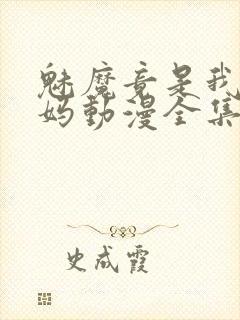 魅魔竟是我
妈動漫全集
史成霞